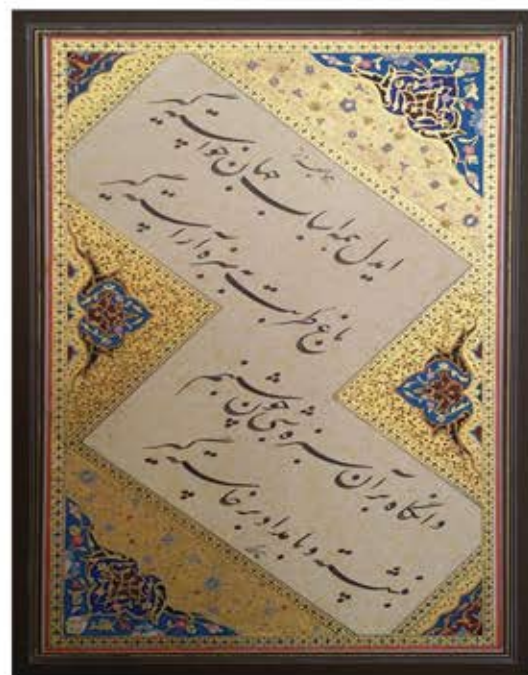 ایدل همه اسباب جهان خواسته گیر
باغ طربت به سبزه آراسته گیر
وانگاه بر آن سبزه شبی چون شبنم
بنشسته و بامداد برخاسته گیر